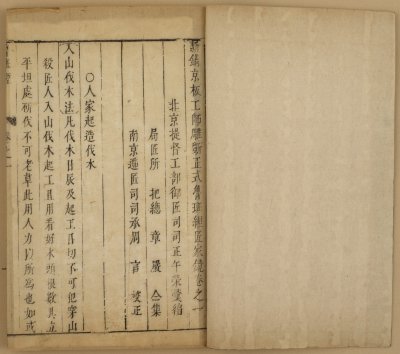 新鐫京板工師雕斲正式魯班經匠家鏡卷之一
北京提督工部御匠司司正午榮彙編
局匠所把總章嚴仝集
南京遞匠司司承周言校正
○人家起造伐木
入山伐木法凡伐木日辰及起工日切不可犯穿山
殺匠人入山伐木起工且用看好木頭根數具立
平坦處斫伐不可老草此用人力以所為也如或